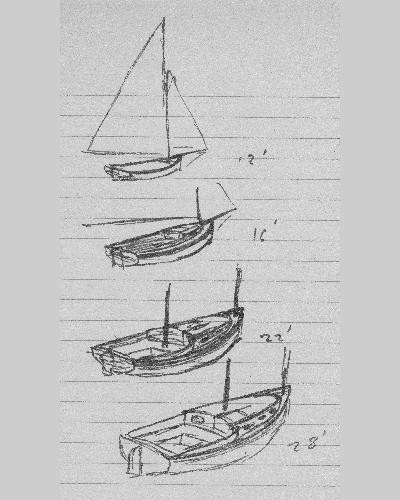 12'
16'
22'
28'